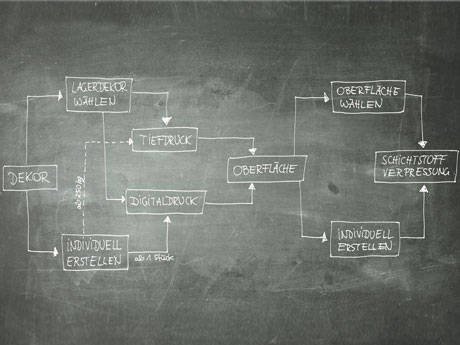 LAGERDEKOR
WÄHLEN
OBERFLÄCHE
WÄHLEN
TIEFDRUCK
DEKOR
OBERFLÄCHE
SCHICHTSTOFF
VERPRESSUNG
DIGITALDRUCK
INDIVIDUELL
ERSTELLEN
ab 1 Stück
INDIVIDUELL
ERSTELLEN